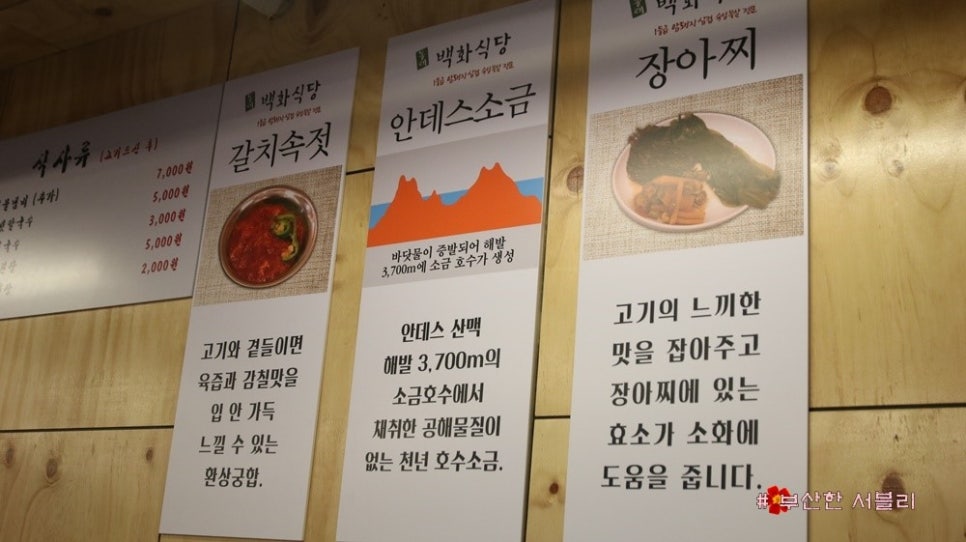 식사류 (고기드신 후)
7,000원
5,000원
3,000원
5,000원
2,000원
백화식당
갈치속젓
고기와 곁들이면
육즙과 감칠맛을
입 안 가득
느낄 수 있는
환상궁합.
백화식당
안데스소금
바닷물이 증발되어 해발
3,700m에 소금 호수가 생성
안데스 산맥
해발 3,700m의
소금호수에서
채취한 공해물질이
없는 천년 호수소금.
백화식당
장아찌
고기의 느끼한
맛을 잡아주고
장아찌에 있는
효소가 소화에
도움을 줍니다.
#부산한 서블리